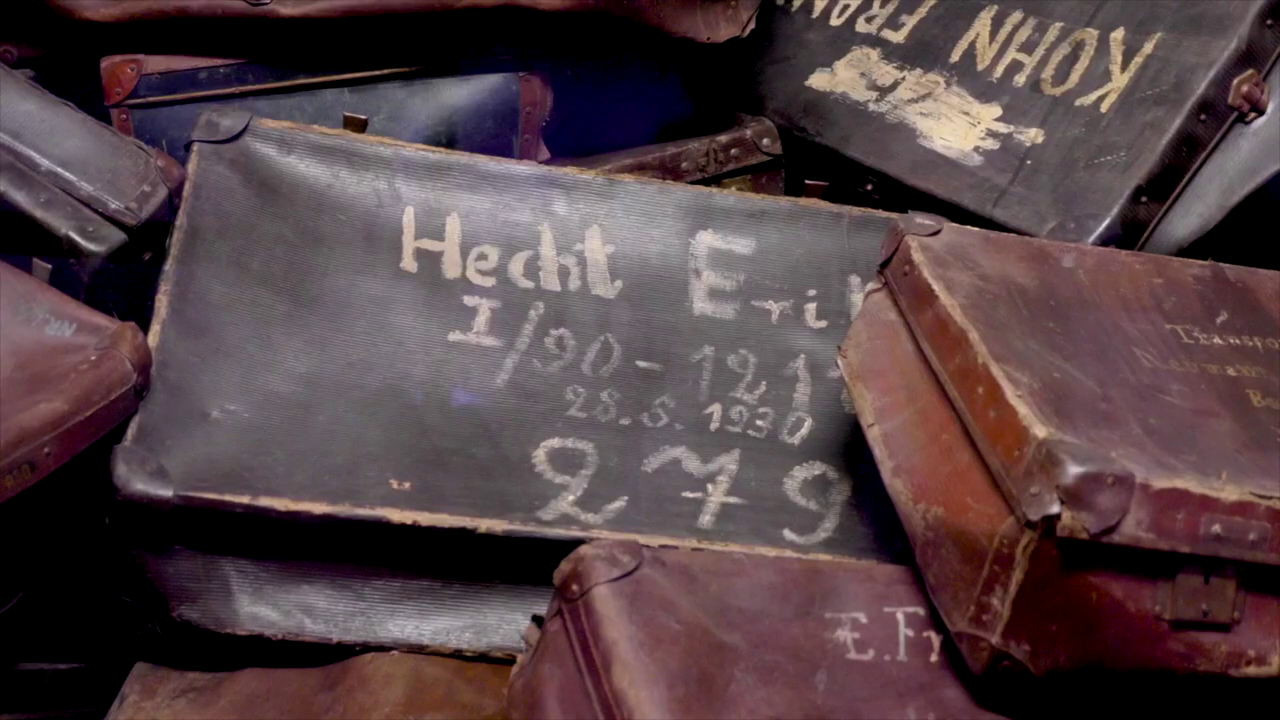 KOHN FRAN
Hecht Eri
I/90 - 121
28.5.1930
279
Transpo
E.Fr